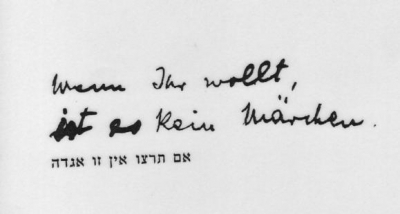 Wenn Ihr wollt,
ist es kein Märchen.
אם תרצו אין זו אגדה